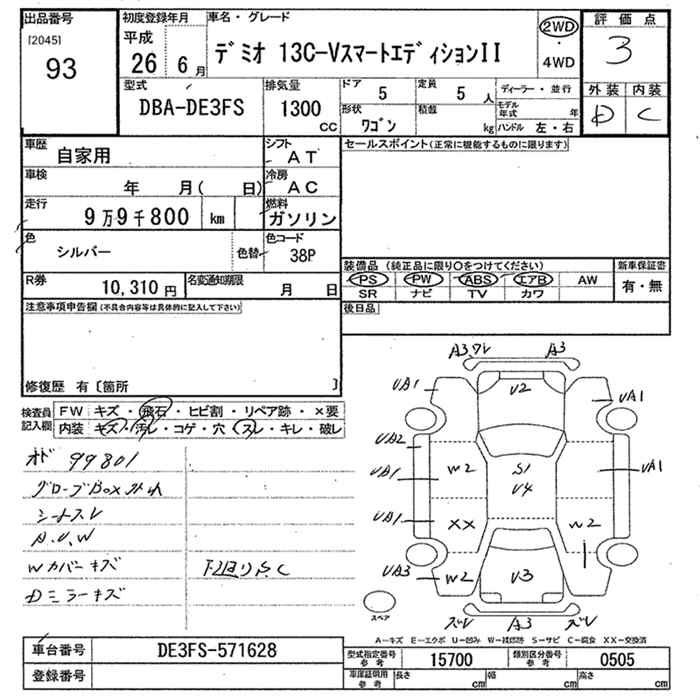 出品番号
[2045]
93
初度登録年月
平成
26 6 月
車名・グレード
デミオ 13C-VスマートエディションII
2WD
・
4WD
評価点
3
外装 内装
D C
型式
DBA-DE3FS
排気量
1300
CC
ドア
5
定員
5 人
形状
ワゴン
積載
kg
ディーラー・並行
モデル年式 年
ハンドル 左・右
車歴
自家用
シフト
AT
車検
年 月( 日)
冷房
AC
走行
9万9千800 km
燃料
ガソリン
色
シルバー
色替
色コード
38P
R券
10,310 円
名変通知期限
月 日
セールスポイント(正常に機能するものに限ります)
装備品 (純正品に限り○をつけてください)
新車保証書
PS PW ABS エアB AW
SR ナビ TV カワ
有・無
後日品
注意事項申告欄(不具合内容等は具体的に記入して下さい)
修復歴 有〔箇所 〕
検査員記入欄
FW キズ・飛石・ヒビ割・リペア跡・×要
内装 キズ・汚レ・コゲ・穴・スレ・キレ・破レ
オド 99801
グローブBox外れ
シートスレ
A.U.W
Wカバーキズ
下廻りS.C
Dミラーキズ
A3,ワレ A3
UA1 U2 UA1
UA2
W2 S1 UA1
UA1 U4
UA1 XX W2
UA3 W2 U3
ズレ A3 ズレ
スペア
A-キズ E-エクボ U-凹み W-補修跡 S-サビ C-腐食 XX-交換済
車台番号
DE3FS-571628
登録番号
型式指定番号 参考
15700
類別区分番号 参考
0505
車庫証明用 参考
長さ cm 幅 cm 高さ cm